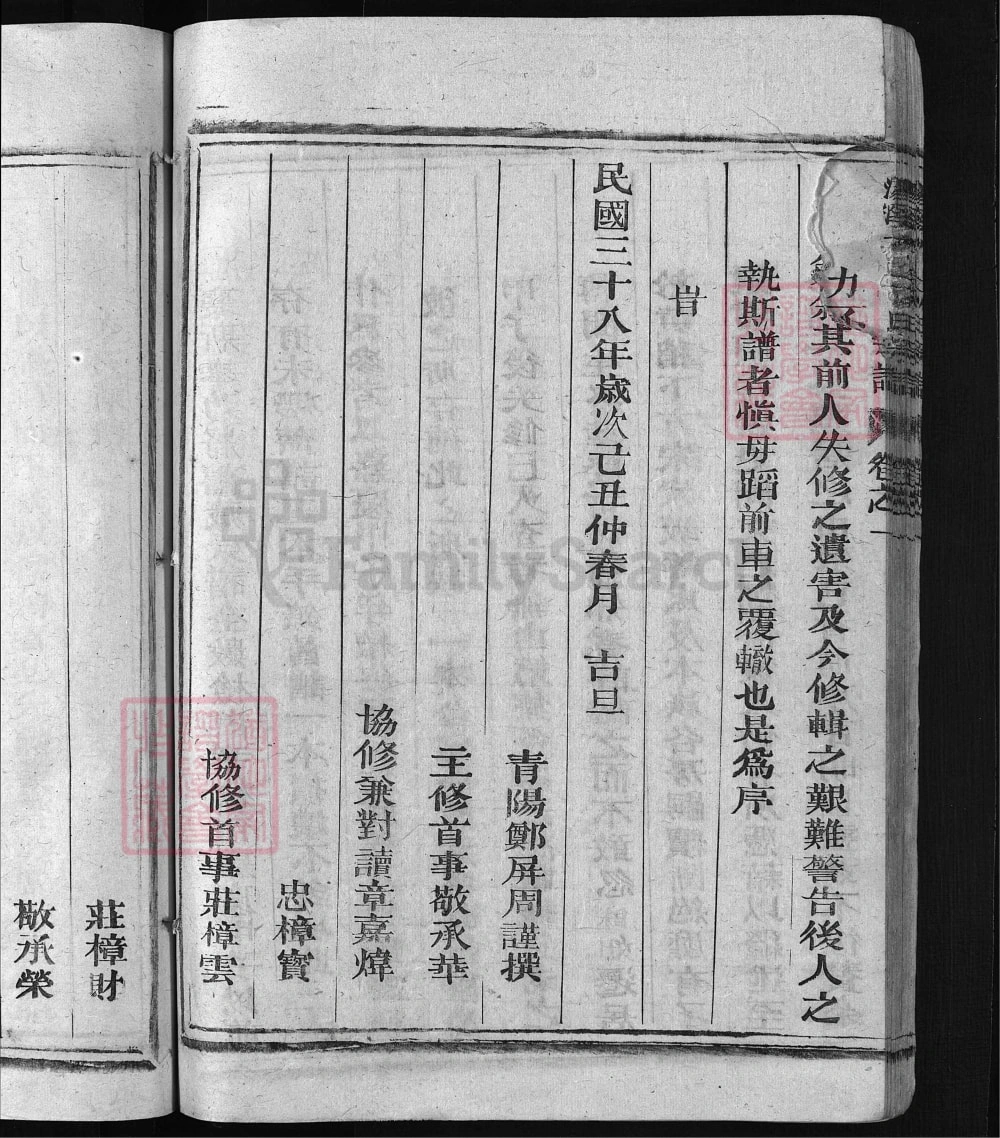 其前人失修之遺害及今修輯之艱難警告後人之
執斯譜者愼毋蹈前車之覆轍也是爲序
旹
民國三十八年歲次己丑仲春月 吉旦
青陽鄭屏周謹撰
主修首事敬承華
協修兼對讀章嘉煒
忠樟寶
協修首事莊樟雲
莊樟財
敬承榮
卷之一
FamilySearch